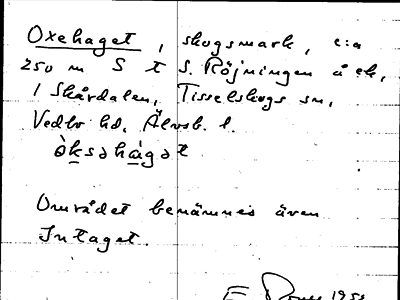 Oxehaget, skogsmark, c:a
250 m S t S. Röjningen å ek,
1 Skårdalen, Tisselskogs sn,
Vedbo hd, Älvsb. l.
òksəhágət
Området benämnes även
Intaget.
E. 1951